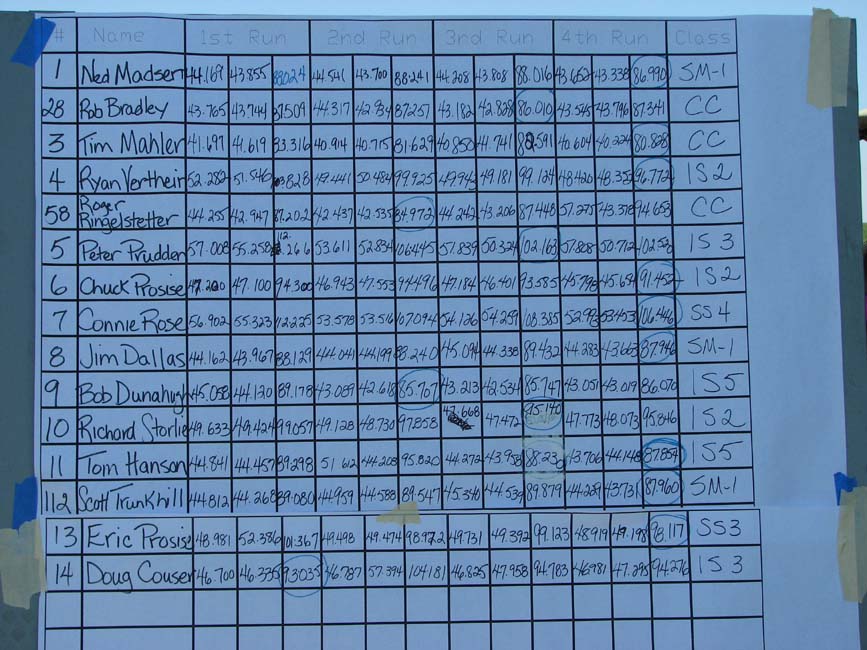 # Name 1st Run 2nd Run 3rd Run 4th Run Class
1 Ned Madsen 44.169 43.855 88.024 44.541 43.700 88.241 44.208 43.808 88.016 43.652 43.338 86.990 SM-1
28 Rob Bradley 43.765 43.744 87.509 44.317 42.934 87.257 43.182 42.828 86.010 43.545 43.796 87.341 CC
3 Tim Mahler 41.697 41.619 83.316 40.914 40.715 81.629 40.850 41.741 82.591 40.604 40.224 80.828 CC
4 Ryan 52.282 51.546 49.441 50.484 99.925 49.943 49.181 99.124 48.420 48.352 96.772 IS2
58 Roger Ringelstetter 44.255 42.947 87.202 42.437 42.535 84.972 44.242 43.206 87.448 51.275 43.378 94.653 CC
5 Peter Prudden 57.008 55.258 112.266 53.611 52.834 106.445 51.839 50.324 102.163 51.808 50.712 102.520 IS3
6 Chuck Prosise 47.200 47.100 94.300 46.943 47.553 94.496 47.184 46.401 93.585 45.798 45.654 91.452 IS2
7 Connie Rose 56.902 55.323 112.225 53.578 53.516 107.094 54.126 54.259 108.385 52.993 53.453 106.446 SS4
8 Jim Dallas 44.162 43.967 88.129 44.041 44.199 88.240 45.094 44.338 89.432 44.283 43.663 87.946 SM-1
9 Bob Dunahugh 45.058 44.120 89.178 43.089 42.618 85.707 43.213 42.534 85.747 43.051 43.019 86.070 IS5
10 Richard Storlie 49.633 49.424 99.057 49.128 48.730 97.858 47.668 47.472 95.140 47.773 48.073 95.846 IS2
11 Tom Hanson 44.841 44.457 89.298 51.612 44.208 95.820 44.272 43.958 88.230 43.706 44.148 87.854 IS5
112 Scott Trunkhill 44.812 44.268 89.080 44.959 44.588 89.547 45.340 44.539 89.879 44.229 43.731 87.960 SM-1
13 Eric Prosise 48.981 52.386 101.367 49.498 49.474 98.972 49.731 49.392 99.123 48.919 49.198 98.117 SS3
14 Doug Couser 46.700 46.335 93.035 46.787 57.394 104.181 46.825 47.958 94.783 46.981 47.295 94.276 IS3